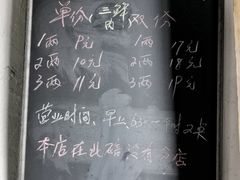 单份 三鲜肉 双份
1两 9元 1两 17元
2两 10元 2两 18元
3两 11元 3两 19元
营业时间、早上
本店在此路没有分店